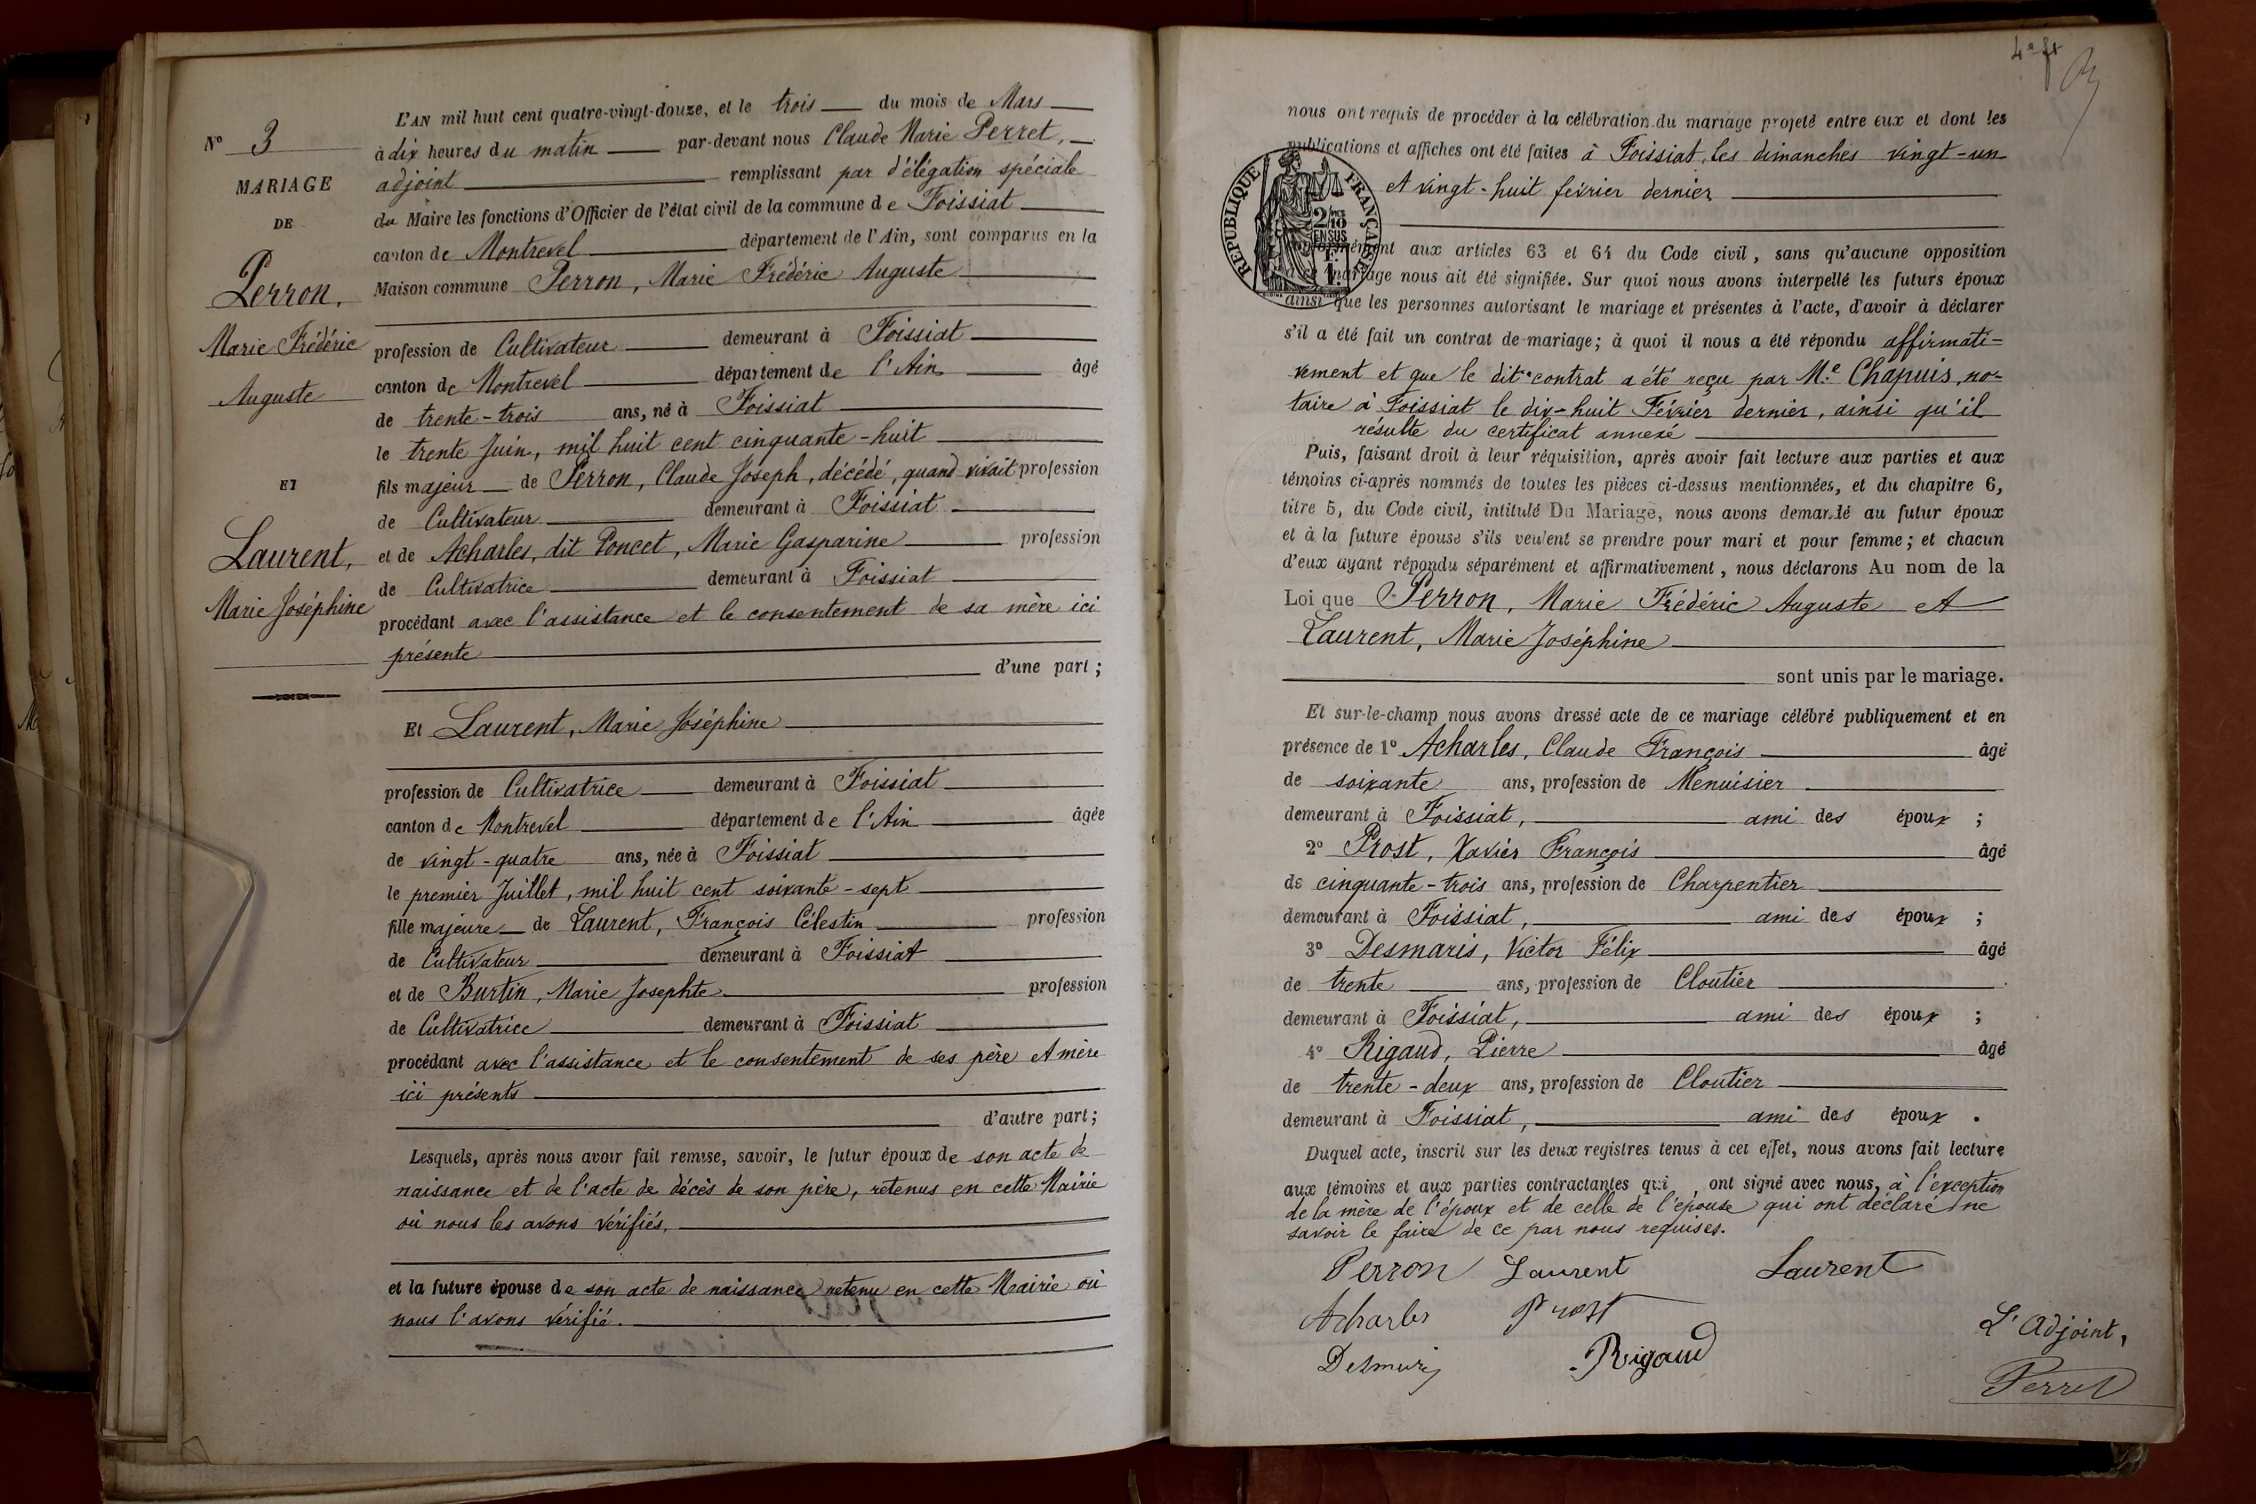 N° 3
MARIAGE
DE
Perron,
Marie Frédéric
Auguste
ET
Laurent,
Marie Joséphine
L'AN mil huit cent quatre-vingt-douze, et le trois du mois de Mars
à dix heures du matin par-devant nous Claude Marie Perret,
adjoint remplissant par d'élégation spéciale
du Maire les fonctions d'Officier de l'état civil de la commune de Foissiat
canton de Montrevel département de l'Ain, sont comparus en la
Maison commune Perron, Marie Frédéric Auguste
profession de Cultivateur demeurant à Foissiat
canton de Montrevel département de l'Ain âgé
de trente-trois ans, né à Foissiat
le trente Juin, mil huit cent cinquante-huit
fils majeur de Perron, Claude Joseph, décédé, quand vivait profession
de Cultivateur demeurant à Foissiat
et de Acharles, dit Poncet, Marie Gasparine profession
de Cultivatrice demeurant à Foissiat
procédant avec l'assistance et le consentement de sa mère ici
présente
d'une part;
Et Laurent, Marie Joséphine
profession de Cultivatrice demeurant à Foissiat
canton de Montrevel département de l'Ain âgée
de vingt-quatre ans, née à Foissiat
le premier Juillet, mil huit cent soixante-sept
fille majeure de Laurent, François Célestin profession
de Cultivateur demeurant à Foissiat
et de Burtin, Marie Josephte profession
de Cultivatrice demeurant à Foissiat
procédant avec l'assistance et le consentement de ses père et mère
ici présents
d'autre part;
Lesquels, après nous avoir fait remise, savoir, le futur époux de son acte de
naissance et de l'acte de décès de son père, retenus en cette Mairie
où nous les avons vérifiés,
et la future épouse de son acte de naissance retenu en cette Mairie où
nous l'avons vérifié.
nous ont requis de procéder à la célébration du mariage projeté entre eux et dont les
publications et affiches ont été faites à Foissiat, les dimanches vingt-un
et vingt-huit février dernier
RÉPUBLIQUE FRANÇAISE
2/10 EN SUS
conformément aux articles 63 et 64 du Code civil, sans qu'aucune opposition
mariage nous ait été signifiée. Sur quoi nous avons interpellé les futurs époux
ainsi que les personnes autorisant le mariage et présentes à l'acte, d'avoir à déclarer
s'il a été fait un contrat de mariage; à quoi il nous a été répondu affirmati=
vement et que le dit contrat a été reçu par M.e Chapuis, no=
taire à Foissiat le dix-huit Février dernier, ainsi qu'il
résulte du certificat annexé
Puis, faisant droit à leur réquisition, après avoir fait lecture aux parties et aux
témoins ci-après nommés de toutes les pièces ci-dessus mentionnées, et du chapitre 6,
titre 5, du Code civil, intitulé Du Mariage, nous avons demandé au futur époux
et à la future épouse s'ils veulent se prendre pour mari et pour femme; et chacun
d'eux ayant répondu séparément et affirmativement, nous déclarons Au nom de la
Loi que Perron, Marie Frédéric Auguste et
Laurent, Marie Joséphine
sont unis par le mariage.
Et sur-le-champ nous avons dressé acte de ce mariage célébré publiquement et en
présence de 1° Acharles, Claude François âgé
de soixante ans, profession de Menuisier
demeurant à Foissiat, ami des époux ;
2° Prost, Xavier François âgé
de cinquante-trois ans, profession de Charpentier
demeurant à Foissiat, ami des époux ;
3° Desmaris, Victor Félix âgé
de trente ans, profession de Cloutier
demeurant à Foissiat, ami des époux ;
4° Rigaud, Pierre âgé
de trente-deux ans, profession de Cloutier
demeurant à Foissiat, ami des époux .
Duquel acte, inscrit sur les deux registres tenus à cet effet, nous avons fait lecture
aux témoins et aux parties contractantes qui ont signé avec nous, à l'exception
de la mère de l'époux et de celle de l'épouse qui ont déclaré ne
savoir le faire de ce par nous requises.
Perron Laurent Laurent
Acharles Prost
L'adjoint,
Desmaris Rigaud
Perret